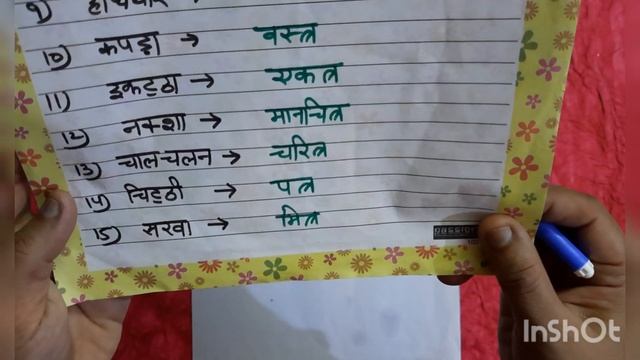 9) हथियार →
10) कपड़ा → वस्त्र
11) इकट्ठा → एकत्र
12) नक्शा → मानचित्र
13) चाल-चलन → चरित्र
14) चिट्ठी → पत्र
15) सखा → मित्र
InShOt